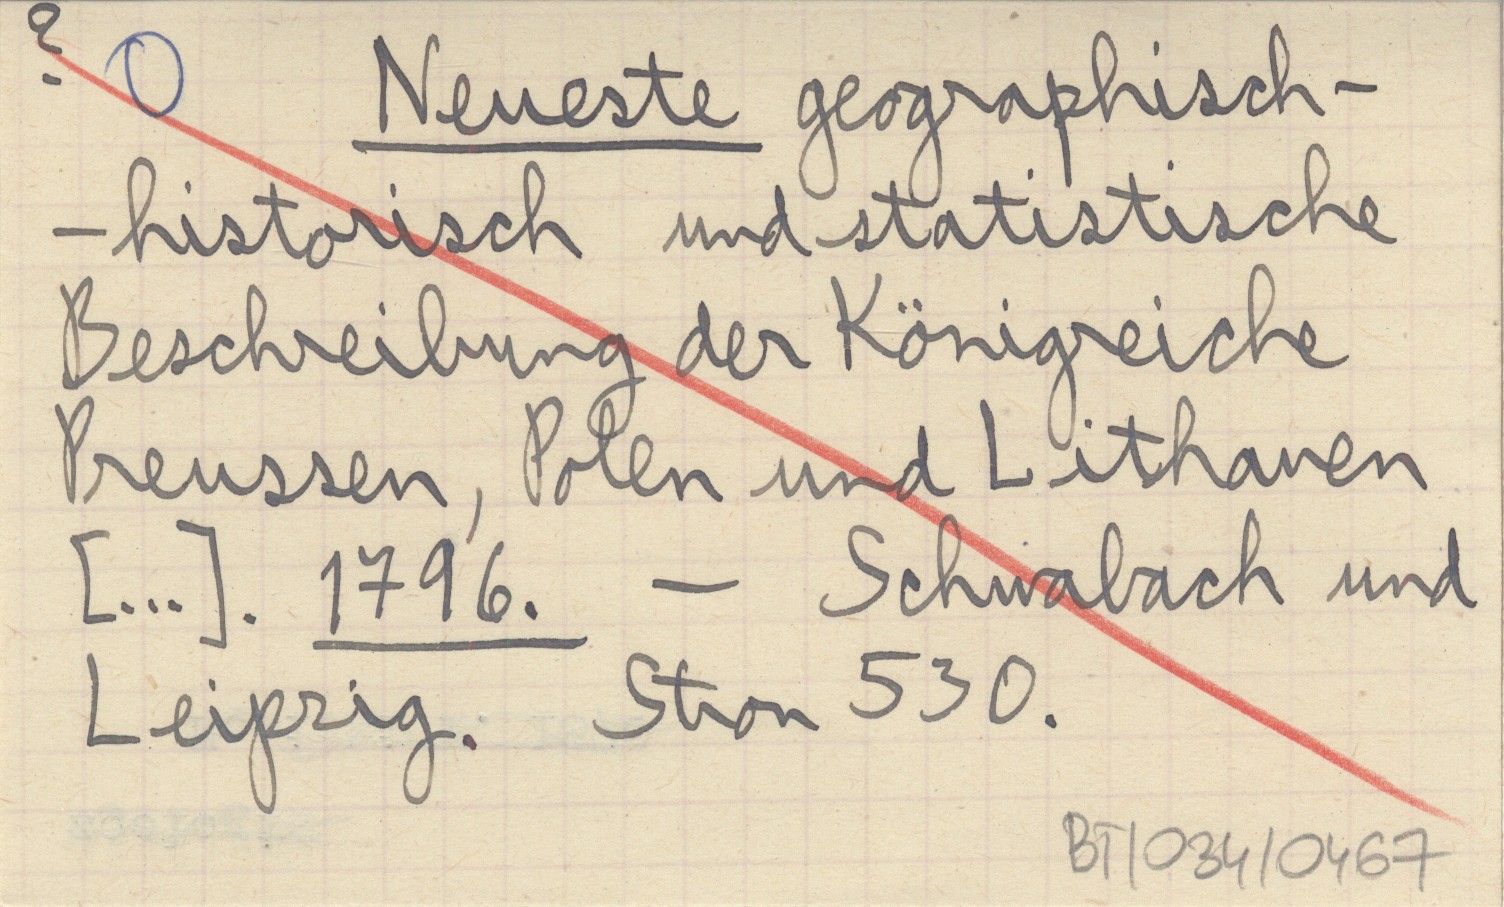 ? O Neueste geographisch-
-historisch und statistische
Beschreibung der Königreiche
Preussen, Polen und Lithauen
[...]. 1796. — Schwabach und
Leipzig. Stron 530.
BT/034/0467